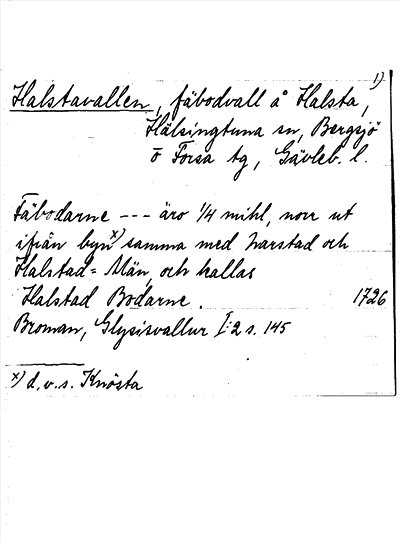 1)
Halstavallen, fäbodvall å Halsta,
Hälsingtuna sn, Bergsjö
o Forsa tg, Gävleb. l.
Fäbodarne --- äro 1/4 mihl, norr ut
ifrån byn x) samma med Narstad och
Halstad= Män, och kallas
Halstad Bodarne. 1726
Broman, Glysisvallur I:2 s. 145
x) d.v.s. Knösta